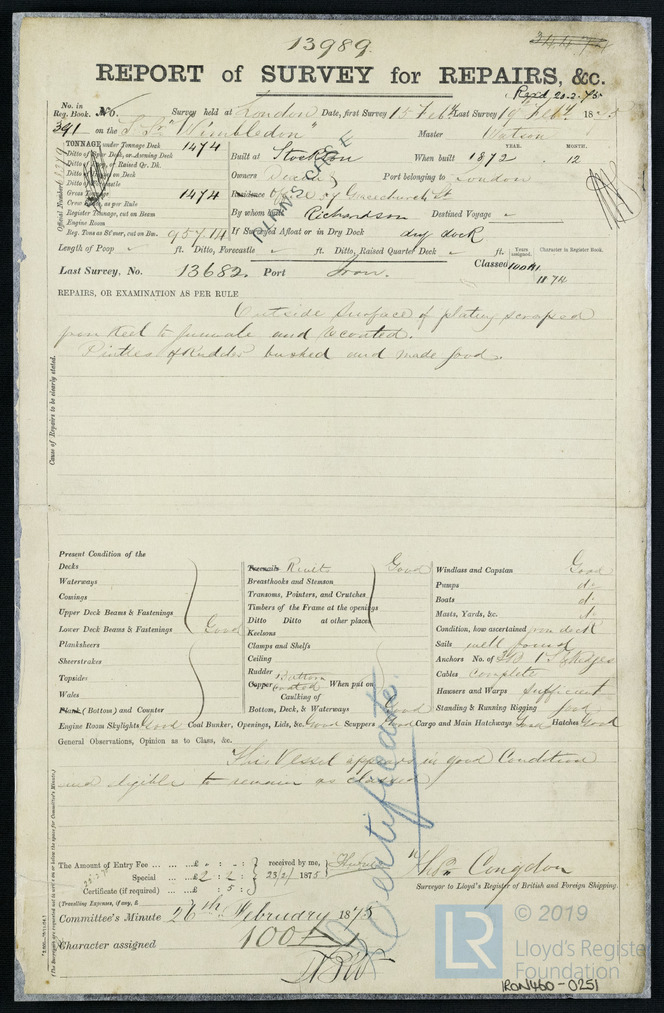 13989.
REPORT of SURVEY for REPAIRS, &c.
Rec'd 20.2.75
No. in Reg. Book. No. Survey held at London Date, first Survey 15 Feby Last Survey 19 Feby 1875
391 on the S. Sr "Wimbledon" Master Watson
TONNAGE under Tonnage Deck 1474
YEAR. MONTH.
Built at Stockton When built 1872 12
Owners Port belonging to London
Gross Tonnage 1474
Residence Office 57 Gracechurch St
Crew Room, as per Rule
Register Tonnage, cut on Beam
By whom built Richardson Destined Voyage
Engine Room
Reg. Tons as St'mer, cut on Bm. 957.14
If Surveyed Afloat or in Dry Dock dry dock
Length of Poop ft. Ditto, Forecastle ft. Ditto, Raised Quarter Deck ft.
Years assigned. Character in Register Book.
Classed 100A1
1874
Last Survey, No. 13682. Port Iron.
Official Number
REPAIRS, OR EXAMINATION AS PER RULE
Outside Surface of plating scraped
from keel to gunwale and recoated.
Pintles of Rudder bushed and made good.
Cause of Repairs to be clearly stated.
Present Condition of the
Decks
Waterways
Comings
Upper Deck Beams & Fastenings
Lower Deck Beams & Fastenings Good
Planksheers
Sheerstrakes
Topsides
Wales
Plank (Bottom) and Counter
Treenails Rivets Good
Breasthooks and Stemson
Transoms, Pointers, and Crutches
Timbers of the Frame at the openings
Ditto Ditto at other places
Keelsons
Clamps and Shelfs
Ceiling
Rudder
Copper Bottom Coated When put on
Caulking of
Bottom, Deck, & Waterways Good
Windlass and Capstan Good
Pumps do
Boats do
Masts, Yards, &c. do
Condition, how ascertained from deck
Sails well found
Anchors No. of
Cables complete
Hausers and Warps Sufficient
Standing & Running Rigging good
Engine Room Skylights Good Coal Bunker, Openings, Lids, &c. Good Scuppers Good Cargo and Main Hatchways Good Hatches Good
General Observations, Opinion as to Class, &c.
This Vessel appears in good Condition
and eligible to remain as classed
Certificate.
The Amount of Entry Fee £ : : received by me,
Special £2 : 2 : 23/2/1875
Certificate (if required) £ : 5 :
(Travelling Expenses, if any, £
Thos. Congdon
Surveyor to Lloyd's Register of British and Foreign Shipping.
Committee's Minute 26th February 1875
Character assigned 100A1
© 2019
LR
Lloyd's Register
Foundation
IRON460-0251